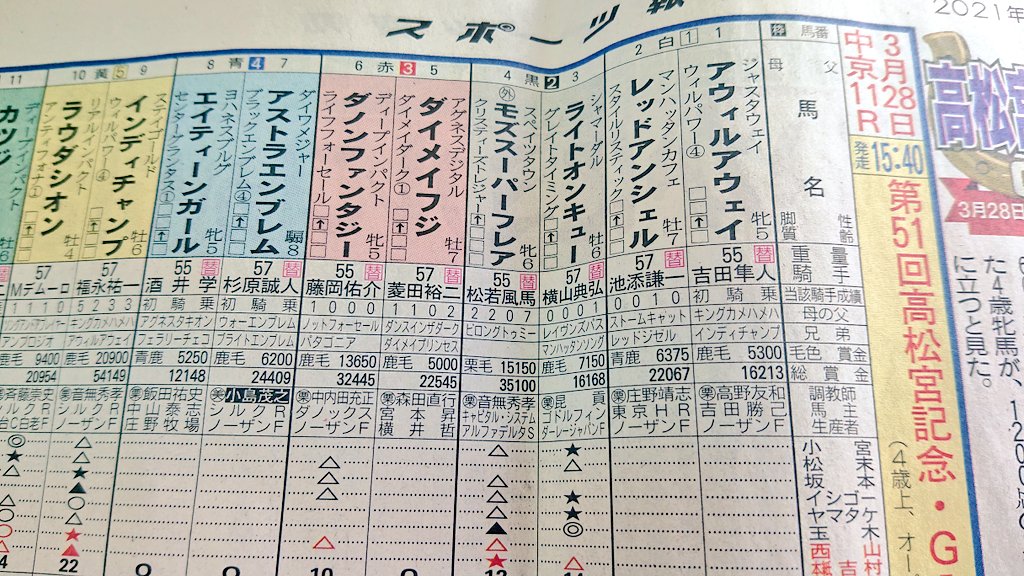 スポーツ報
2021年
3月28日
中京11R
発走15:40
第51回高松宮記念・G
(4歳上、オー
高松宮
3月28日
た4歳牝馬が、1200
に立つと見た。
枠 馬番
母 父
馬名
脚質 性齢
重量
騎手
当該騎手成績
母の父
兄弟
毛色 賞金
総賞金
調教師
馬主
生産者
小松坂
宮本本
イシゴー
ヤマタケ
玉木
西村
山村
白 1 1
ジャスタウェイ
アウィルアウェイ
ウィルパワー④
牝5
55
吉田隼人
初騎乗
キングカメハメハ
インディチャンプ
鹿毛 5300
16213
高野友和
吉田勝己
ノーザンF
2
マンハッタンカフェ
レッドアンシェル
スタイルリスティック
牡7
57 替
池添謙一
0 0 1 0
ストームキャット
レッドジゼル
青鹿 6375
22067
庄野靖志
東京HR
ノーザンF
黒 2 3
シャマーダル
ライトオンキュー
グレイトタイミング
牡6
57 替
横山典弘
0 0 0 1
レイヴンズパス
マンハッタンソング
鹿毛 7150
16168
昆貢
ゴドルフィン
ダーレージャパンF
4
スペイツタウン
外 モズスーパーフレア
クリスティーズトレジャー
牝6
55
松若風馬
2 2 0 7
ビロングトゥミー
栗毛 15150
35100
音無秀孝
キャピタル・システム
アルファデルタS
赤 3 5
アグネスデジタル
ダイメイフジ
ダイメイダーク①
牡7
57 替
菱田裕二
1 1 0 2
ダンスインザダーク
ダイメイプリンセス
鹿毛 5000
22545
森田直行
宮本昇
横井哲
6
ディープインパクト
ダノンファンタジー
ライフフォーセール
牝5
55 替
藤岡佑介
1 0 0 0
ノットフォーセール
パタゴニア
鹿毛 13650
32445
中内田充正
ダノックス
ノーザンF
青 4 7
ダイワメジャー
アストラエンブレム
ブラックエンブレム④
騸8
57 替
杉原誠人
初騎乗
ウォーエンブレム
ブライトエンブレム
鹿毛 6200
24409
小島茂之
シルクR
ノーザンF
8
ヨハネスブルグ
エイティーンガール
センターグランタス①
牝5
55 替
酒井学
初騎乗
アグネスタキオン
フェラリーチェコ
青鹿 5250
12148
飯田祐史
中山泰志
庄野牧場
黄 5 9
ステイゴールド
インディチャンプ
ウィルパワー④
牡6
57
福永祐一
キングカメハメハ
アウィルアウェイ
鹿毛 20900
54149
音無秀孝
シルクR
ノーザンF
22
10
リアルインパクト
ラウダシオン
アンティフォナ①
牡4
57
Mデムーロ
1 1 1 0
アンブロジオ
鹿毛 9400
20954
斉藤崇史
シルクR
白老F
11
ディープインパクト
カツジ
牡6